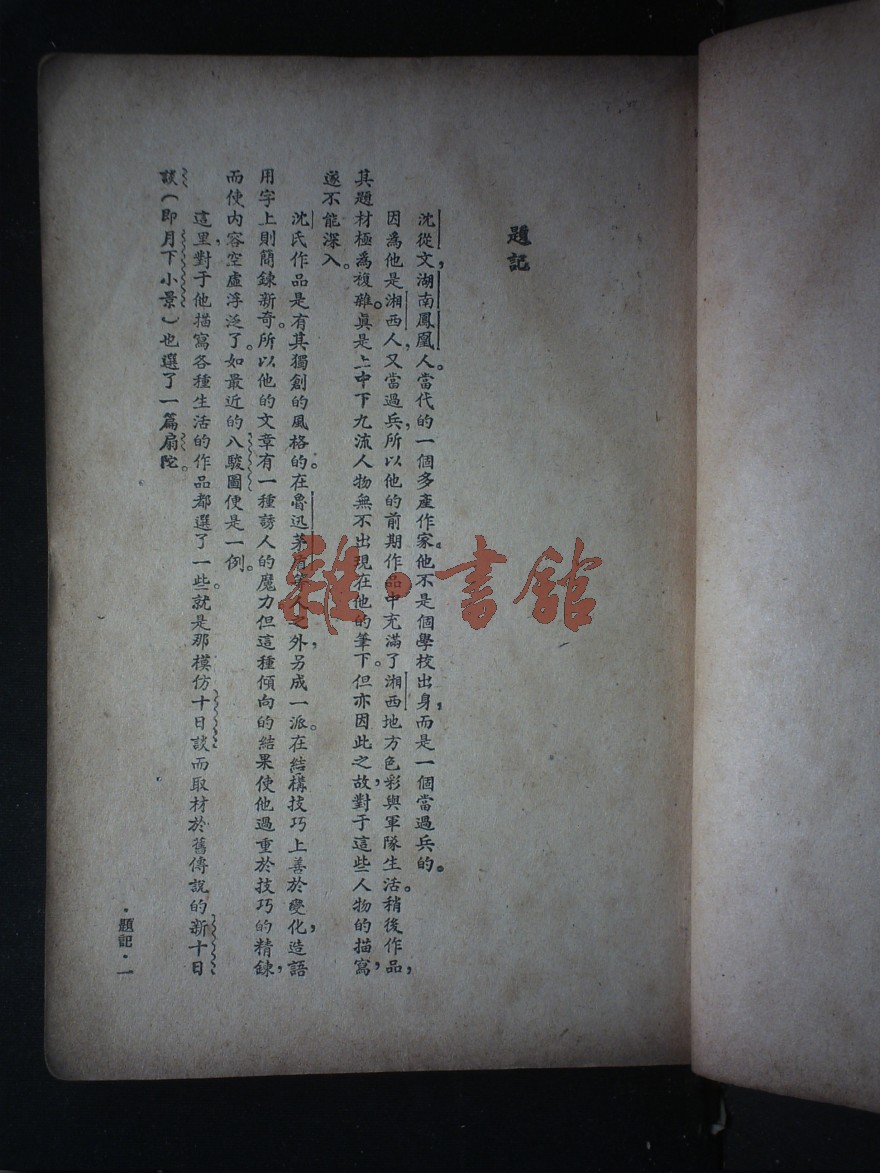 題記
沈從文，湖南鳳凰人。當代的一個多產作家。他不是個學校出身，而是一個當過兵的。
因爲他是湘西人，又當過兵，所以他的前期作品中充滿了湘西地方色彩與軍隊生活。稍後作品，
其題材極爲複雜。眞是上中下九流人物無不出現在他的筆下。但亦因此之故，對于這些人物的描寫，
遂不能深入。
沈氏作品是有其獨創的風格的。在魯迅茅盾等人之外，另成一派。在結構技巧上善於變化，造語
用字上則簡鍊新奇。所以他的文章有一種誘人的魔力。但這種傾向的結果使他過重於技巧的精鍊，
而使內容空虛浮泛了。如最近的八駿圖便是一例。
這里，對于他描寫各種生活的作品都選了一些。就是那模仿十日談而取材於舊傳說的新十日
談（卽月下小景）也選了一篇扇陀。
·題記·一
雜·書館